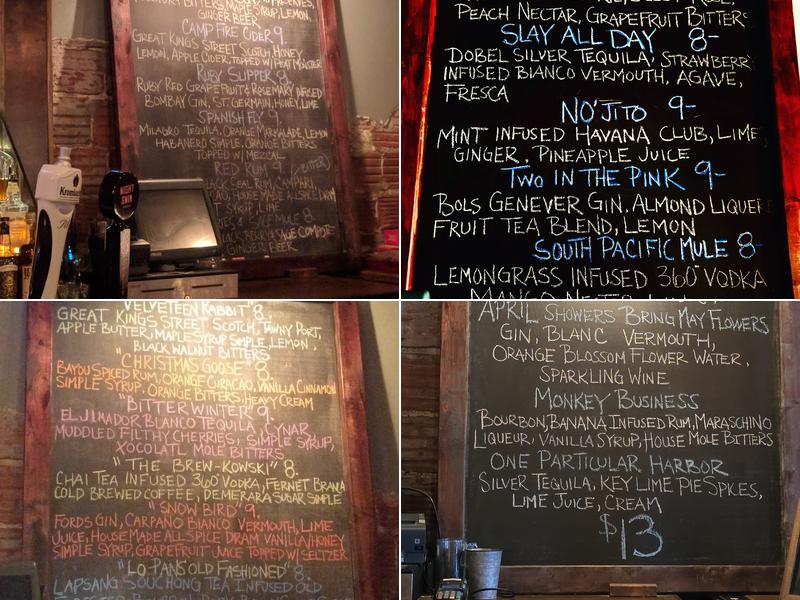 BITTERS, MAPLE SYRUP, LEMON,
GINGER BEER
CAMP FIRE CIDER 9.
GREAT KINGS STREET SCOTCH, HONEY
LEMON, APPLE CIDER, TOPPED W/ PEAT MONSTER
RUBY SLIPPER 9.
RUBY RED GRAPEFRUIT & ROSEMARY INFUSED
BOMBAY GIN, ST. GERMAIN, HONEY, LIME
SPANISH FLY 9.
MILAGRO TEQUILA, ORANGE MARMALADE, LEMON
HABANERO SIMPLE, ORANGE BITTERS
TOPPED W/ MEZCAL
RED RUM 9. (BITTER)
BLACK SEAL RUM, CAMPARI,
MADE ALLSPICE DRAM
MULE 8.
SAGE COMPOTE
GINGER BEER
NIGHT
SWIM
PEACH NECTAR, GRAPEFRUIT BITTERS
SLAY ALL DAY 8-
DOBEL SILVER TEQUILA, STRAWBERRY
INFUSED BIANCO VERMOUTH, AGAVE,
FRESCA
NO'JITO 9-
MINT INFUSED HAVANA CLUB, LIME,
GINGER, PINEAPPLE JUICE
TWO IN THE PINK 9-
BOLS GENEVER GIN, ALMOND LIQUEUR
FRUIT TEA BLEND, LEMON
SOUTH PACIFIC MULE 8-
LEMONGRASS INFUSED 360° VODKA
"VELVETEEN RABBIT" 8.
GREAT KINGS STREET SCOTCH, TAWNY PORT,
APPLE BUTTER, MAPLE SYRUP SIMPLE, LEMON,
BLACK WALNUT BITTERS
"CHRISTMAS GOOSE" 8.
BAYOU SPICED RUM, ORANGE CURACAO, VANILLA CINNAMON
SIMPLE SYRUP, ORANGE BITTERS, HEAVY CREAM
"BITTER WINTER" 9.
EL JIMADOR BLANCO TEQUILA, CYNAR,
MUDDLED FILTHY CHERRIES, SIMPLE SYRUP,
XOCOLATL MOLE BITTERS
"THE BREW-KOWSKI" 8.
CHAI TEA INFUSED 360° VODKA, FERNET BRANA
COLD BREWED COFFEE, DEMERARA SUGAR SIMPLE
"SNOW BIRD" 9.
FORDS GIN, CARPANO BIANCO VERMOUTH, LIME
JUICE, HOUSE MADE ALL SPICE DRAM VANILLA/HONEY
SIMPLE SYRUP, GRAPEFRUIT JUICE TOPPED W/ SELTZER
"LO PANS OLD FASHIONED" 8.
LAPSANG SOUCHONG TEA INFUSED OLD
APRIL SHOWERS BRING MAY FLOWERS
GIN, BLANC VERMOUTH,
ORANGE BLOSSOM FLOWER WATER,
SPARKLING WINE
MONKEY BUSINESS
BOURBON, BANANA INFUSED RUM, MARASCHINO
LIQUEUR, VANILLA SYRUP, HOUSE MOLE BITTERS
ONE PARTICULAR HARBOR
SILVER TEQUILA, KEY LIME PIE SPICES,
LIME JUICE, CREAM
$13